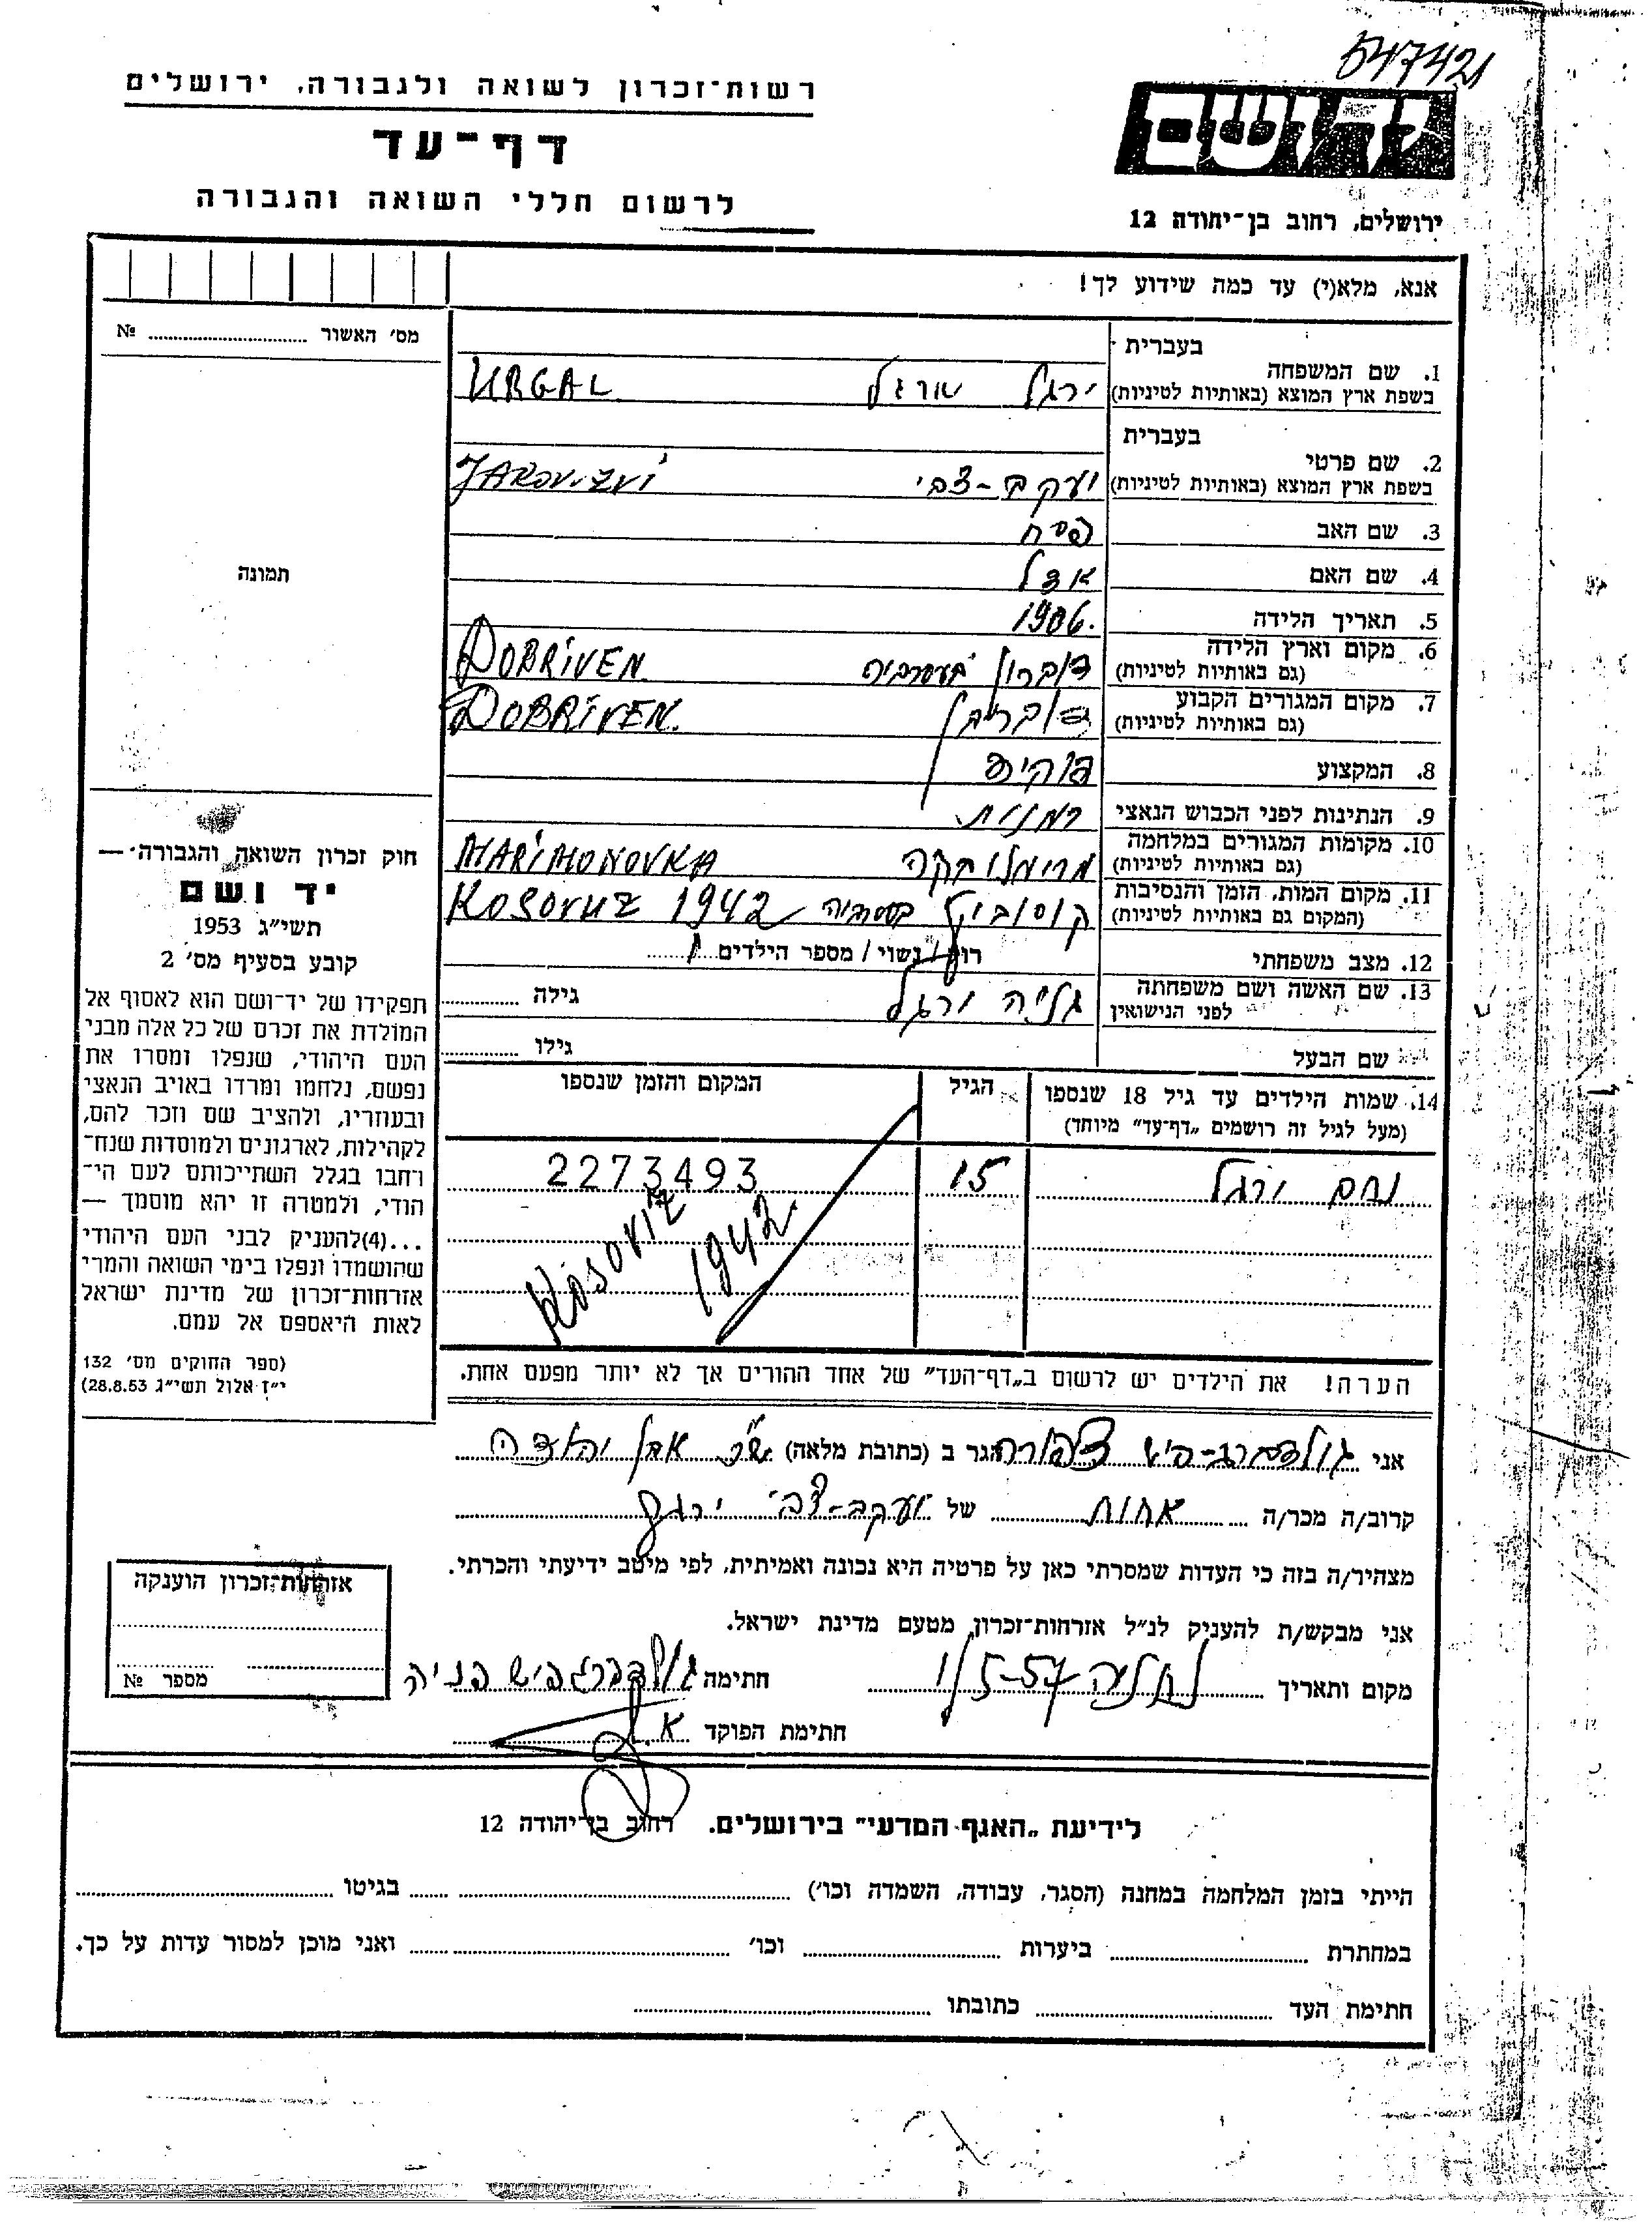 547421
רשות־זכרון לשואה ולגבורה, ירושלים
דף־עד
לרשום חללי השואה והגבורה
יד ושם
ירושלים, רחוב בן־יהודה 12
אנא, מלא(י) עד כמה שידוע לך!
מס' האשור № 
בעברית
1. שם המשפחה
בשפת ארץ המוצא (באותיות לטיניות) ירגל אורגל URGAL
בעברית
2. שם פרטי
בשפת ארץ המוצא (באותיות לטיניות) יעקב-צבי
3. שם האב פסח
4. שם האם אדל
5. תאריך הלידה 1906.
6. מקום וארץ הלידה
(גם באותיות לטיניות) בסרביה DOBRIVEN
7. מקום המגורים הקבוע
(גם באותיות לטיניות) דובריבן DOBRIVEN.
8. המקצוע
9. הנתינות לפני הכבוש הנאצי רמנית
10. מקומות המגורים במלחמה
(גם באותיות לטיניות) MARIMONOVKA
11. מקום המות, הזמן והנסיבות
(המקום גם באותיות לטיניות) בסרביה 1942 KOSOVUZ
12. מצב משפחתי רוק / נשוי / מספר הילדים 1
13. שם האשה ושם משפחתה
לפני הנישואין ורגל גילה
שם הבעל גילו
14. שמות הילדים עד גיל 18 שנספו
(מעל לגיל זה רושמים „דף־עד" מיוחד)
הגיל
המקום והזמן שנספו
נחם ורגל 15 2273493
Kosoviz
1942
הערה! את הילדים יש לרשום ב„דף־העד" של אחד ההורים אך לא יותר מפעם אחת.
תמונה
חוק זכרון השואה והגבורה —
יד ושם
תשי"ג 1953
קובע בסעיף מס' 2
תפקידו של יד־ושם הוא לאסוף אל
המולדת את זכרם של כל אלה מבני
העם היהודי, שנפלו ומסרו את
נפשם, נלחמו ומרדו באויב הנאצי
ובעוזריו, ולהציב שם וזכר להם,
לקהילות, לארגונים ולמוסדות שנח־
רחבו בגלל השתייכותם לעם הי־
הודי, ולמטרה זו יהא מוסמך —
...(4)להעניק לבני העם היהודי
שהושמדו ונפלו בימי השואה והמרי
אזרחות־זכרון של מדינת ישראל
לאות היאספם אל עמם.
(ספר החוקים מס' 132
י"ז אלול תשי"ג 28.8.53)
אני צפורה הגר ב (כתובת מלאה) אבן יהודה
קרוב/ה מכר/ה אחות של יעקב-צבי ירגל
מצהיר/ה בזה כי העדות שמסרתי כאן על פרטיה היא נכונה ואמיתית, לפי מיטב ידיעתי והכרתי.
אני מבקש/ת להעניק לנ"ל אזרחות־זכרון מטעם מדינת ישראל.
מקום ותאריך נתניה 1/5-57 חתימה
חתימת הפוקד
אזרחות־זכרון הוענקה
מספר №
לידיעת „האגף המדעי" בירושלים. רחוב בן־יהודה 12
הייתי בזמן המלחמה במחנה (הסגר, עבודה, השמדה וכו') בגיטו
במחתרת ביערות וכו' ואני מוכן למסור עדות על כך.
חתימת העד כתובתו